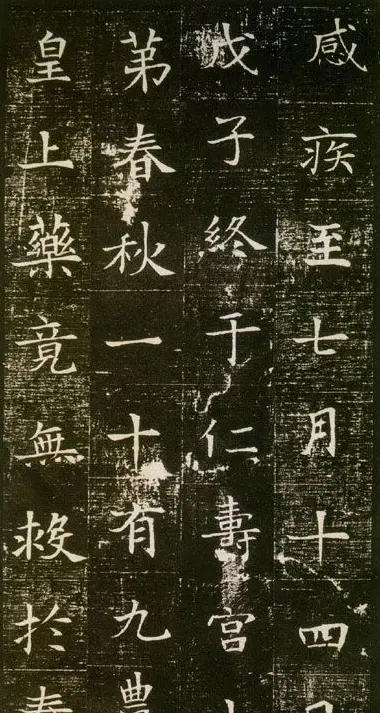 感疾至七月十四
戊子終于仁壽宮
苐春秋一十有九
皇上藥竟無救於